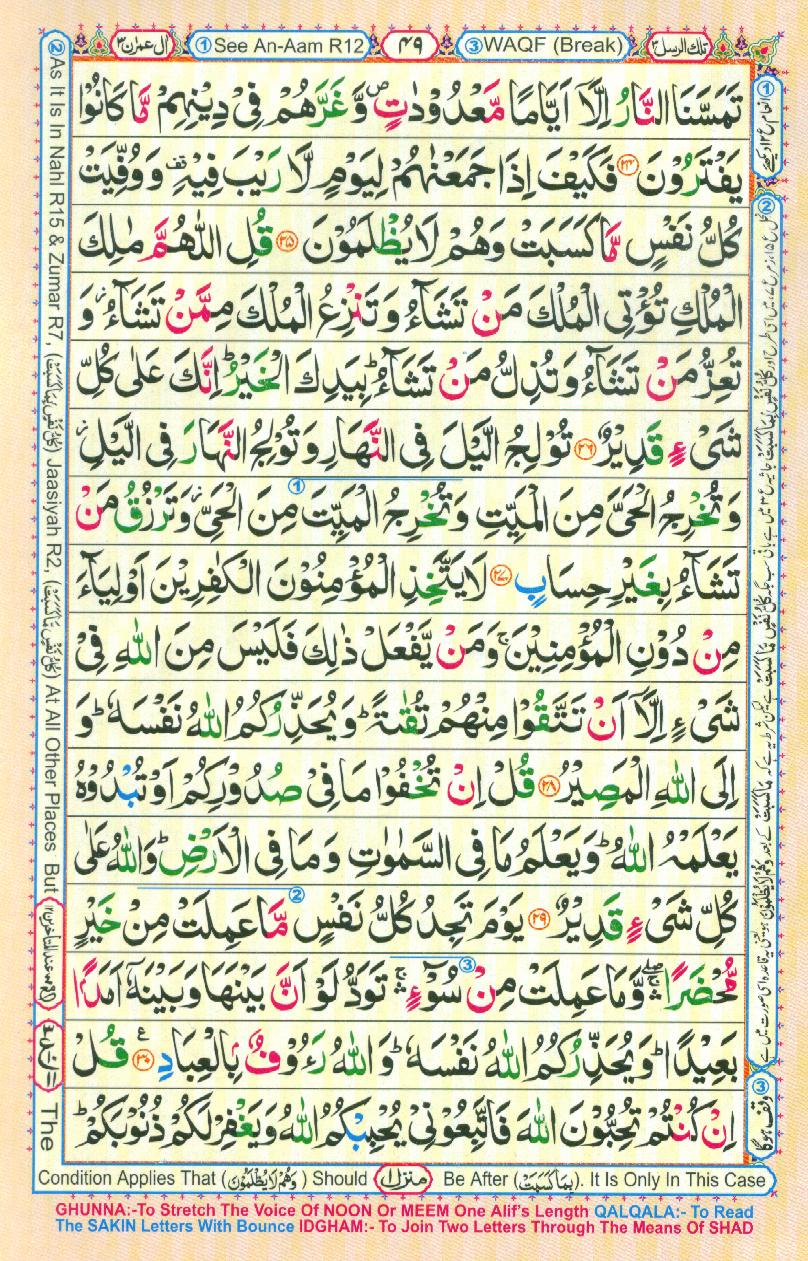 اٰل عمرٰن ۳ ① See An-Aam R12 ۴۹ ③ WAQF (Break) تلك الرسل ۳
تَمَسَّنَا النَّارُ اِلَّاۤ اَيَّامًا مَّعْدُوْدٰتٍ ۪ وَّغَرَّهُمْ فِىْ دِيْنِهِمْ مَّا كَانُوْا
يَفْتَرُوْنَ ﴿۲۴﴾ فَكَيْفَ اِذَا جَمَعْنٰهُمْ لِيَوْمٍ لَّا رَيْبَ فِيْهِ ۟ وَوُفِّيَتْ
كُلُّ نَفْسٍ مَّا كَسَبَتْ وَهُمْ لَا يُظْلَمُوْنَ ﴿۲۵﴾ قُلِ اللّٰهُمَّ مٰلِكَ
الْمُلْكِ تُؤْتِى الْمُلْكَ مَنْ تَشَآءُ وَتَنْزِعُ الْمُلْكَ مِمَّنْ تَشَآءُ ۫ وَ
تُعِزُّ مَنْ تَشَآءُ وَتُذِلُّ مَنْ تَشَآءُ ؕ بِيَدِكَ الْخَيْرُ ؕ اِنَّكَ عَلٰى كُلِّ
شَىْءٍ قَدِيْرٌ ﴿۲۶﴾ تُوْلِجُ الَّيْلَ فِى النَّهَارِ وَتُوْلِجُ النَّهَارَ فِى الَّيْلِ ۫
وَتُخْرِجُ الْحَىَّ مِنَ الْمَيِّتِ وَتُخْرِجُ الْمَيِّتَ مِنَ الْحَىِّ ۫ وَتَرْزُقُ مَنْ
تَشَآءُ بِغَيْرِ حِسَابٍ ﴿۲۷﴾ لَا يَتَّخِذِ الْمُؤْمِنُوْنَ الْكٰفِرِيْنَ اَوْلِيَآءَ
مِنْ دُوْنِ الْمُؤْمِنِيْنَ ۚ وَمَنْ يَّفْعَلْ ذٰلِكَ فَلَيْسَ مِنَ اللّٰهِ فِىْ
شَىْءٍ اِلَّاۤ اَنْ تَتَّقُوْا مِنْهُمْ تُقٰىةً ؕ وَيُحَذِّرُكُمُ اللّٰهُ نَفْسَهٗ ؕ وَ
اِلَى اللّٰهِ الْمَصِيْرُ ﴿۲۸﴾ قُلْ اِنْ تُخْفُوْا مَا فِىْ صُدُوْرِكُمْ اَوْ تُبْدُوْهُ
يَعْلَمْهُ اللّٰهُ ؕ وَيَعْلَمُ مَا فِى السَّمٰوٰتِ وَمَا فِى الْاَرْضِ ؕ وَاللّٰهُ عَلٰى
كُلِّ شَىْءٍ قَدِيْرٌ ﴿۲۹﴾ يَوْمَ تَجِدُ كُلُّ نَفْسٍ مَّا عَمِلَتْ مِنْ خَيْرٍ
مُّحْضَرًا ۛۖ وَّمَا عَمِلَتْ مِنْ سُوْٓءٍ ۛۚ تَوَدُّ لَوْ اَنَّ بَيْنَهَا وَبَيْنَهٗۤ اَمَدًۢا
بَعِيْدًا ؕ وَيُحَذِّرُكُمُ اللّٰهُ نَفْسَهٗ ؕ وَاللّٰهُ رَءُوْفٌۢ بِالْعِبَادِ ﴿۳۰﴾ قُلْ
اِنْ كُنْتُمْ تُحِبُّوْنَ اللّٰهَ فَاتَّبِعُوْنِىْ يُحْبِبْكُمُ اللّٰهُ وَيَغْفِرْ لَكُمْ ذُنُوْبَكُمْ ؕ
② As It Is In Nahl R15 & Zumar R7, (كُلُّ نَفْسٍ مَّا كَسَبَتْ) Jaasiyah R2, (كُلُّ نَفْسٍ بِمَا كَسَبَتْ) At All Other Places But The
③ وقف ہوگا
Condition Applies That (وَهُمْ لَا يُظْلَمُوْنَ) Should منزل ۱ Be After (بِمَا كَسَبَتْ). It Is Only In This Case
GHUNNA:-To Stretch The Voice Of NOON Or MEEM One Alif's Length QALQALA:- To Read
The SAKIN Letters With Bounce IDGHAM:- To Join Two Letters Through The Means Of SHAD